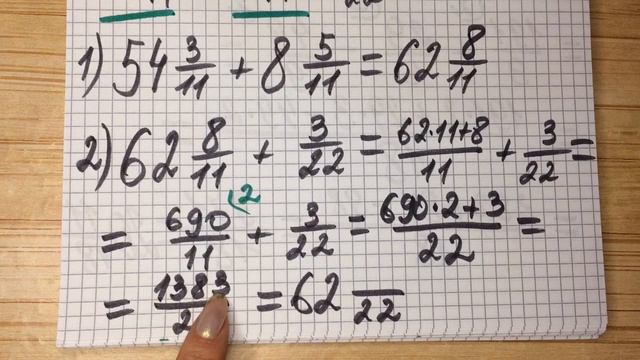 22
1) 54 3/11 + 8 5/11 = 62 8/11
2) 62 8/11 + 3/22 = 62·11+8/11 + 3/22 =
= 690/11 (2 + 3/22 = 690·2+3/22 =
= 1383/2 = 62 /22